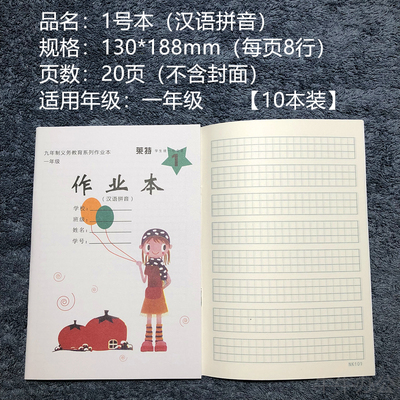 品名：1号本（汉语拼音）
规格：130*188mm（每页8行）
页数：20页（不含封面）
适用年级：一年级　　【10本装】
九年制义务教育系列作业本
一年级
莱特
1
作业本
（汉语拼音）
学校：
班级：
姓名：
学号：